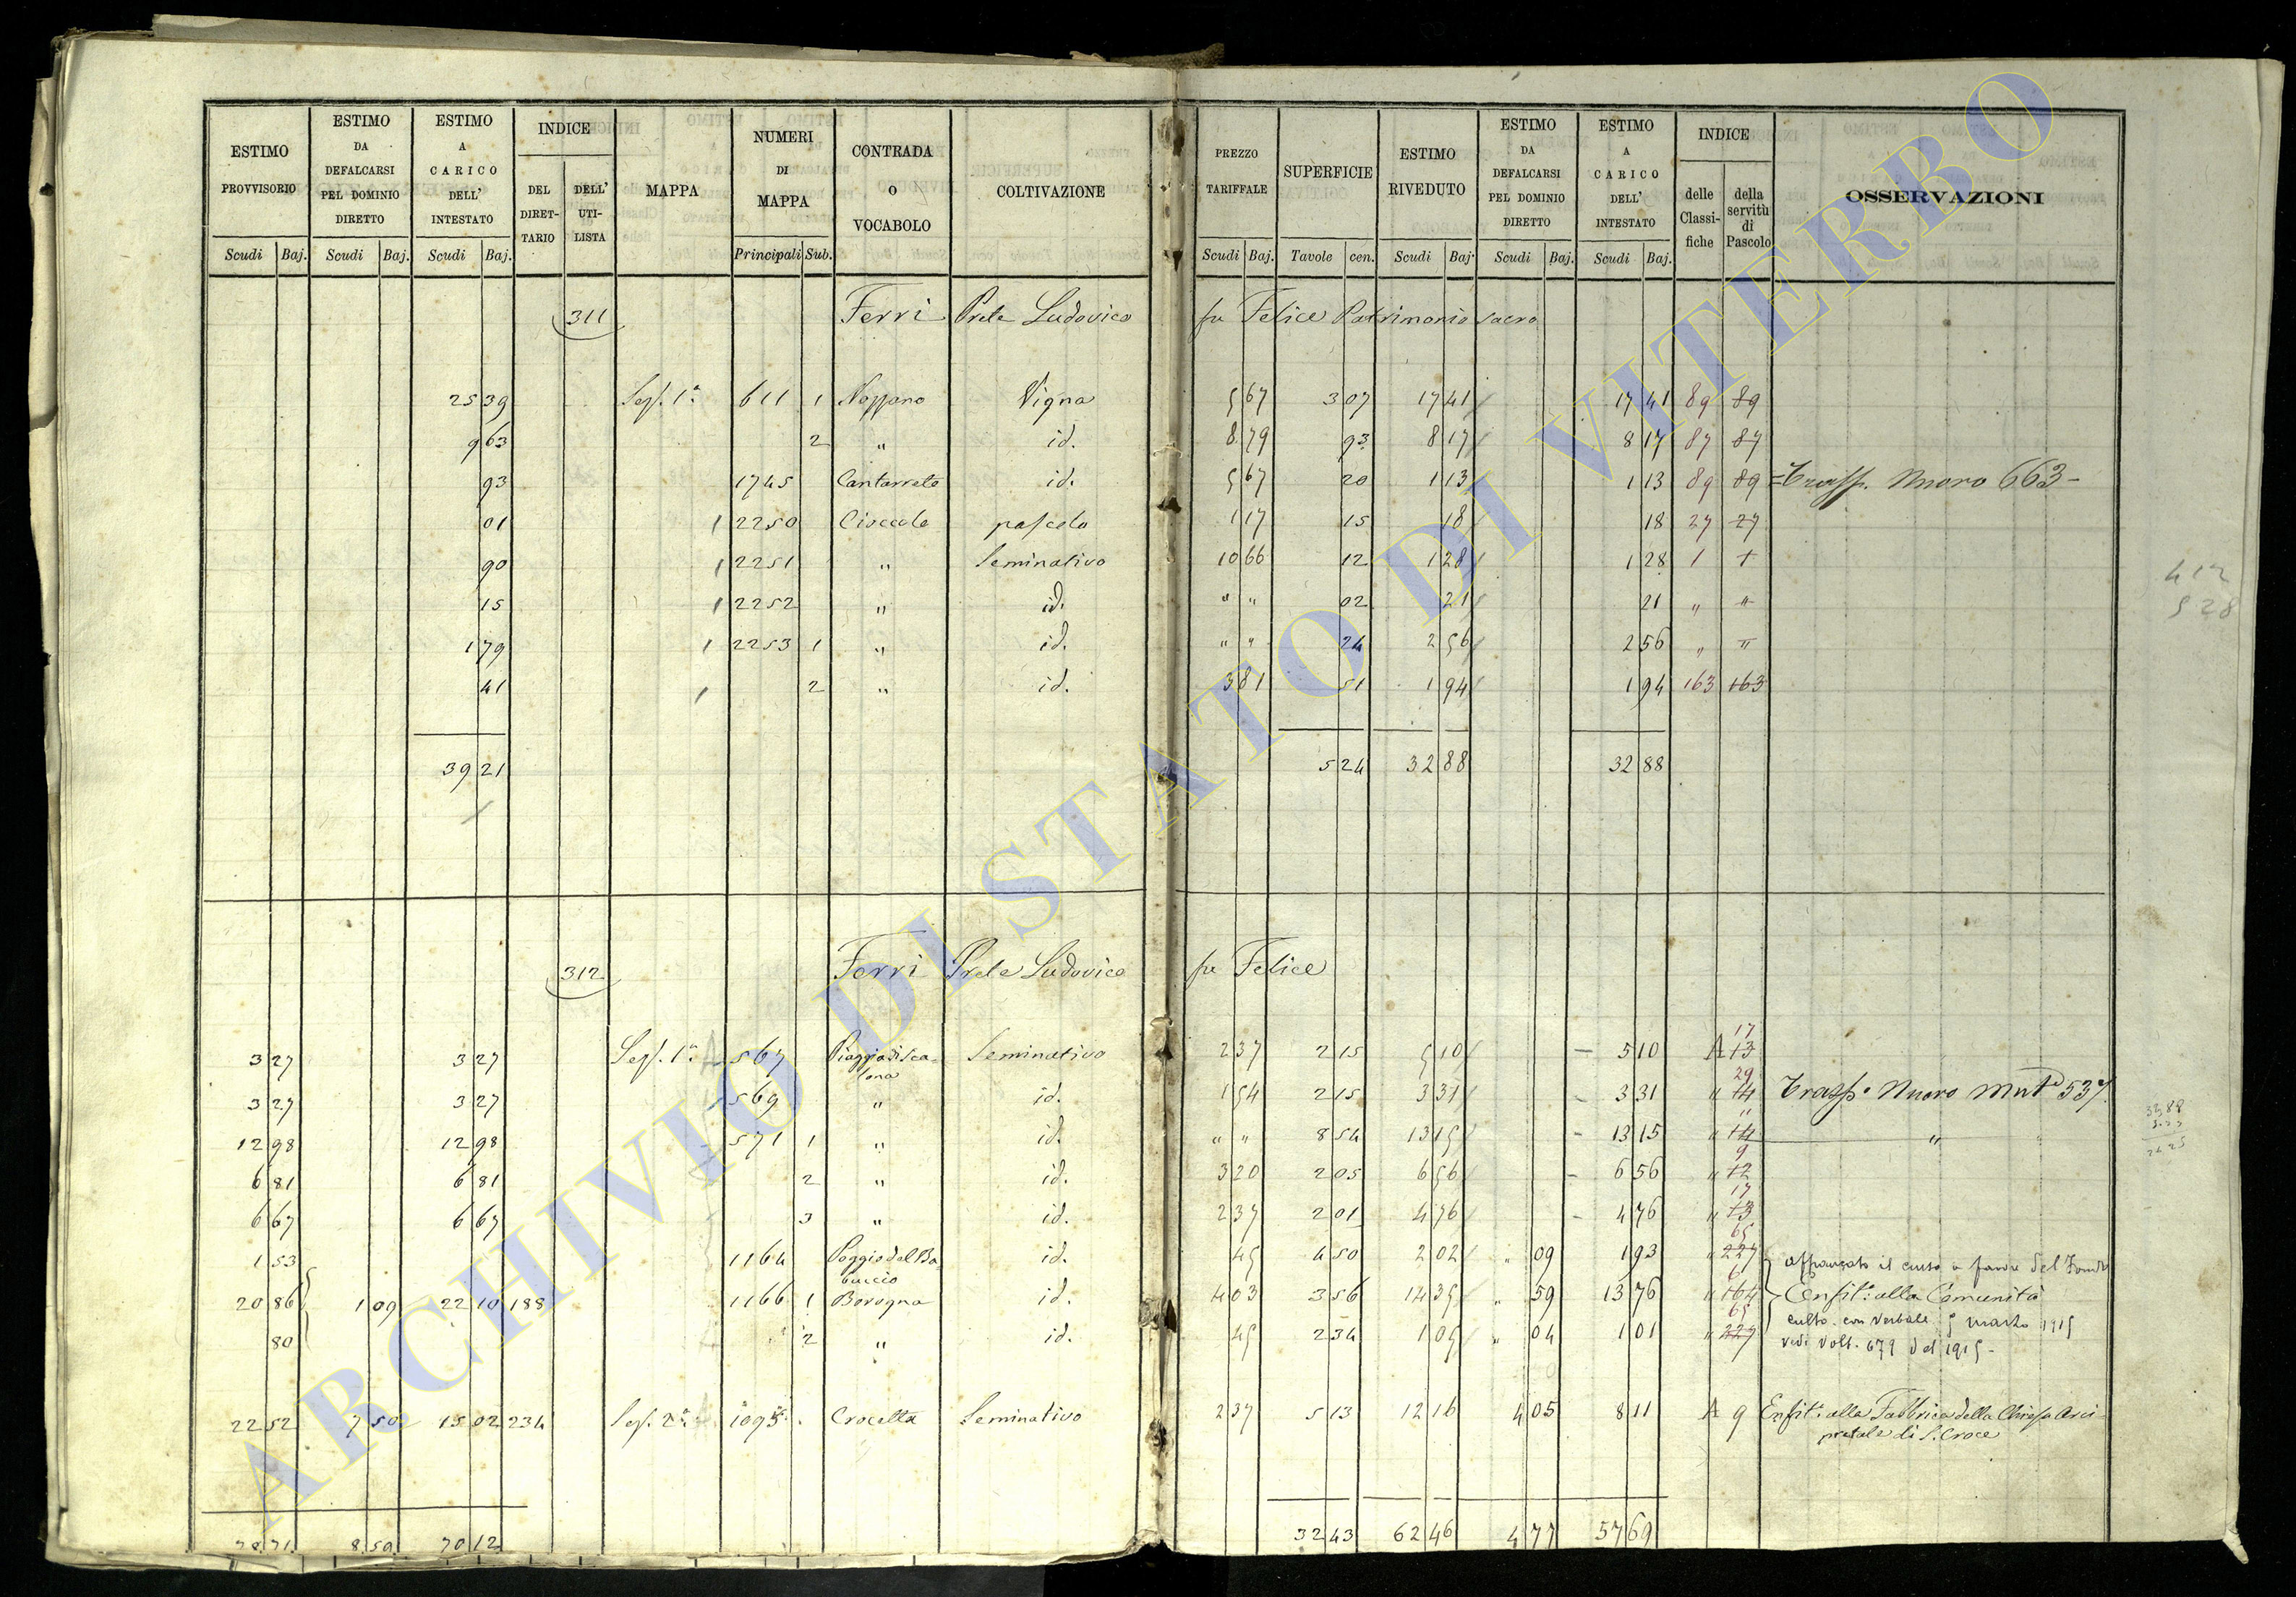 ESTIMO PROVVISORIO Scudi Baj. | ESTIMO DA DEFALCARSI PEL DOMINIO DIRETTO Scudi Baj. | ESTIMO A CARICO DELL' INTESTATO Scudi Baj. | INDICE DEL DIRETTARIO DELL' UTILISTA | MAPPA | NUMERI DI MAPPA Principali Sub. | CONTRADA O VOCABOLO | COLTIVAZIONE | PREZZO TARIFFALE Scudi Baj. | SUPERFICIE Tavole cen. | ESTIMO RIVEDUTO Scudi Baj | ESTIMO DA DEFALCARSI PEL DOMINIO DIRETTO Scudi Baj. | ESTIMO A CARICO DELL' INTESTATO Scudi Baj. | INDICE delle Classifiche della servitù di Pascolo | OSSERVAZIONI
311 Ferri Prete Ludovico fu Felice Patrimonio sacro
25 39 Sez. 1ª 611 1 Vigna 5 67 3 07 17 41 17 41 89 89
9 63 2 " id. 8 79 93 8 17 8 17 87 87
93 1745 Cantarreto id. 5 67 20 1 13 1 13 89 89 =Trasp. Nuoro 663-
01 1 2250 Cioccolo pascolo 1 17 15 18 18 27 27
90 1 2251 " Seminativo 10 66 12 1 28 1 28 1 1
15 1 2252 " id. " " 02 21 21 " "
1 79 1 2253 1 " id. " " 24 2 56 2 56 " "
41 2 " id. 3 81 51 1 94 1 94 163 163
39 21 5 24 32 88 32 88
412
528
312 Ferri Prete Ludovico fu Felice
3 27 3 27 Sez. 1ª 567 Piaggia di Sca=
lona Seminativo 2 37 2 15 5 10 5 10 A 13 17
3 27 3 27 569 " id. 1 54 2 15 3 31 3 31 " 14 29 Trasp. Nuoro Mut. 537.
12 98 12 98 571 1 " id. " " 8 54 13 15 13 15 " 14 " "
6 81 6 81 2 " id. 3 20 2 05 6 56 6 56 " 12 9
6 67 6 67 3 " id. 2 37 2 01 4 76 4 76 " 13 17
1 53 1164 Poggio del Ba=
buccio id. 45 4 50 2 02 " 09 1 93 " 227 65 affrancato il censo a favore del Fondo
20 86 1 09 22 10 188 1166 1 Borogna id. 4 03 3 56 14 35 " 59 13 76 " 164 6 Enfit: alla Comunità
80 2 " id. 45 2 34 1 05 " 04 1 01 " 227 65 culto con verbale 5 marzo 1915
vedi volt. 679 del 1915-
22 52 7 50 15 02 234 Sez. 2ª 1095 Crocetta Seminativo 2 37 5 13 12 16 4 05 8 11 A 9 Enfit. alla Fabbrica della Chiesa Arci=
pretale di S. Croce
78.71. 8.59. 70 12 32 43 62 46 4 77 57 69
ARCHIVIO DI STATO DI VITERBO